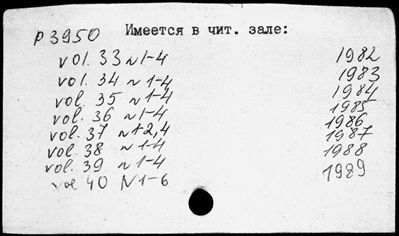 р 3950 Имеется в чит. зале:
vol. 33 N 1-4 1982
vol. 34 N 1-4 1983
vol. 35 N 1-4 1984
vol. 36 N 1-4 1985
vol. 37 N 1-2, 4 1986
vol. 38 N 1-4 1987
vol. 39 N 1-4 1988
vol 40 N 1-6 1989